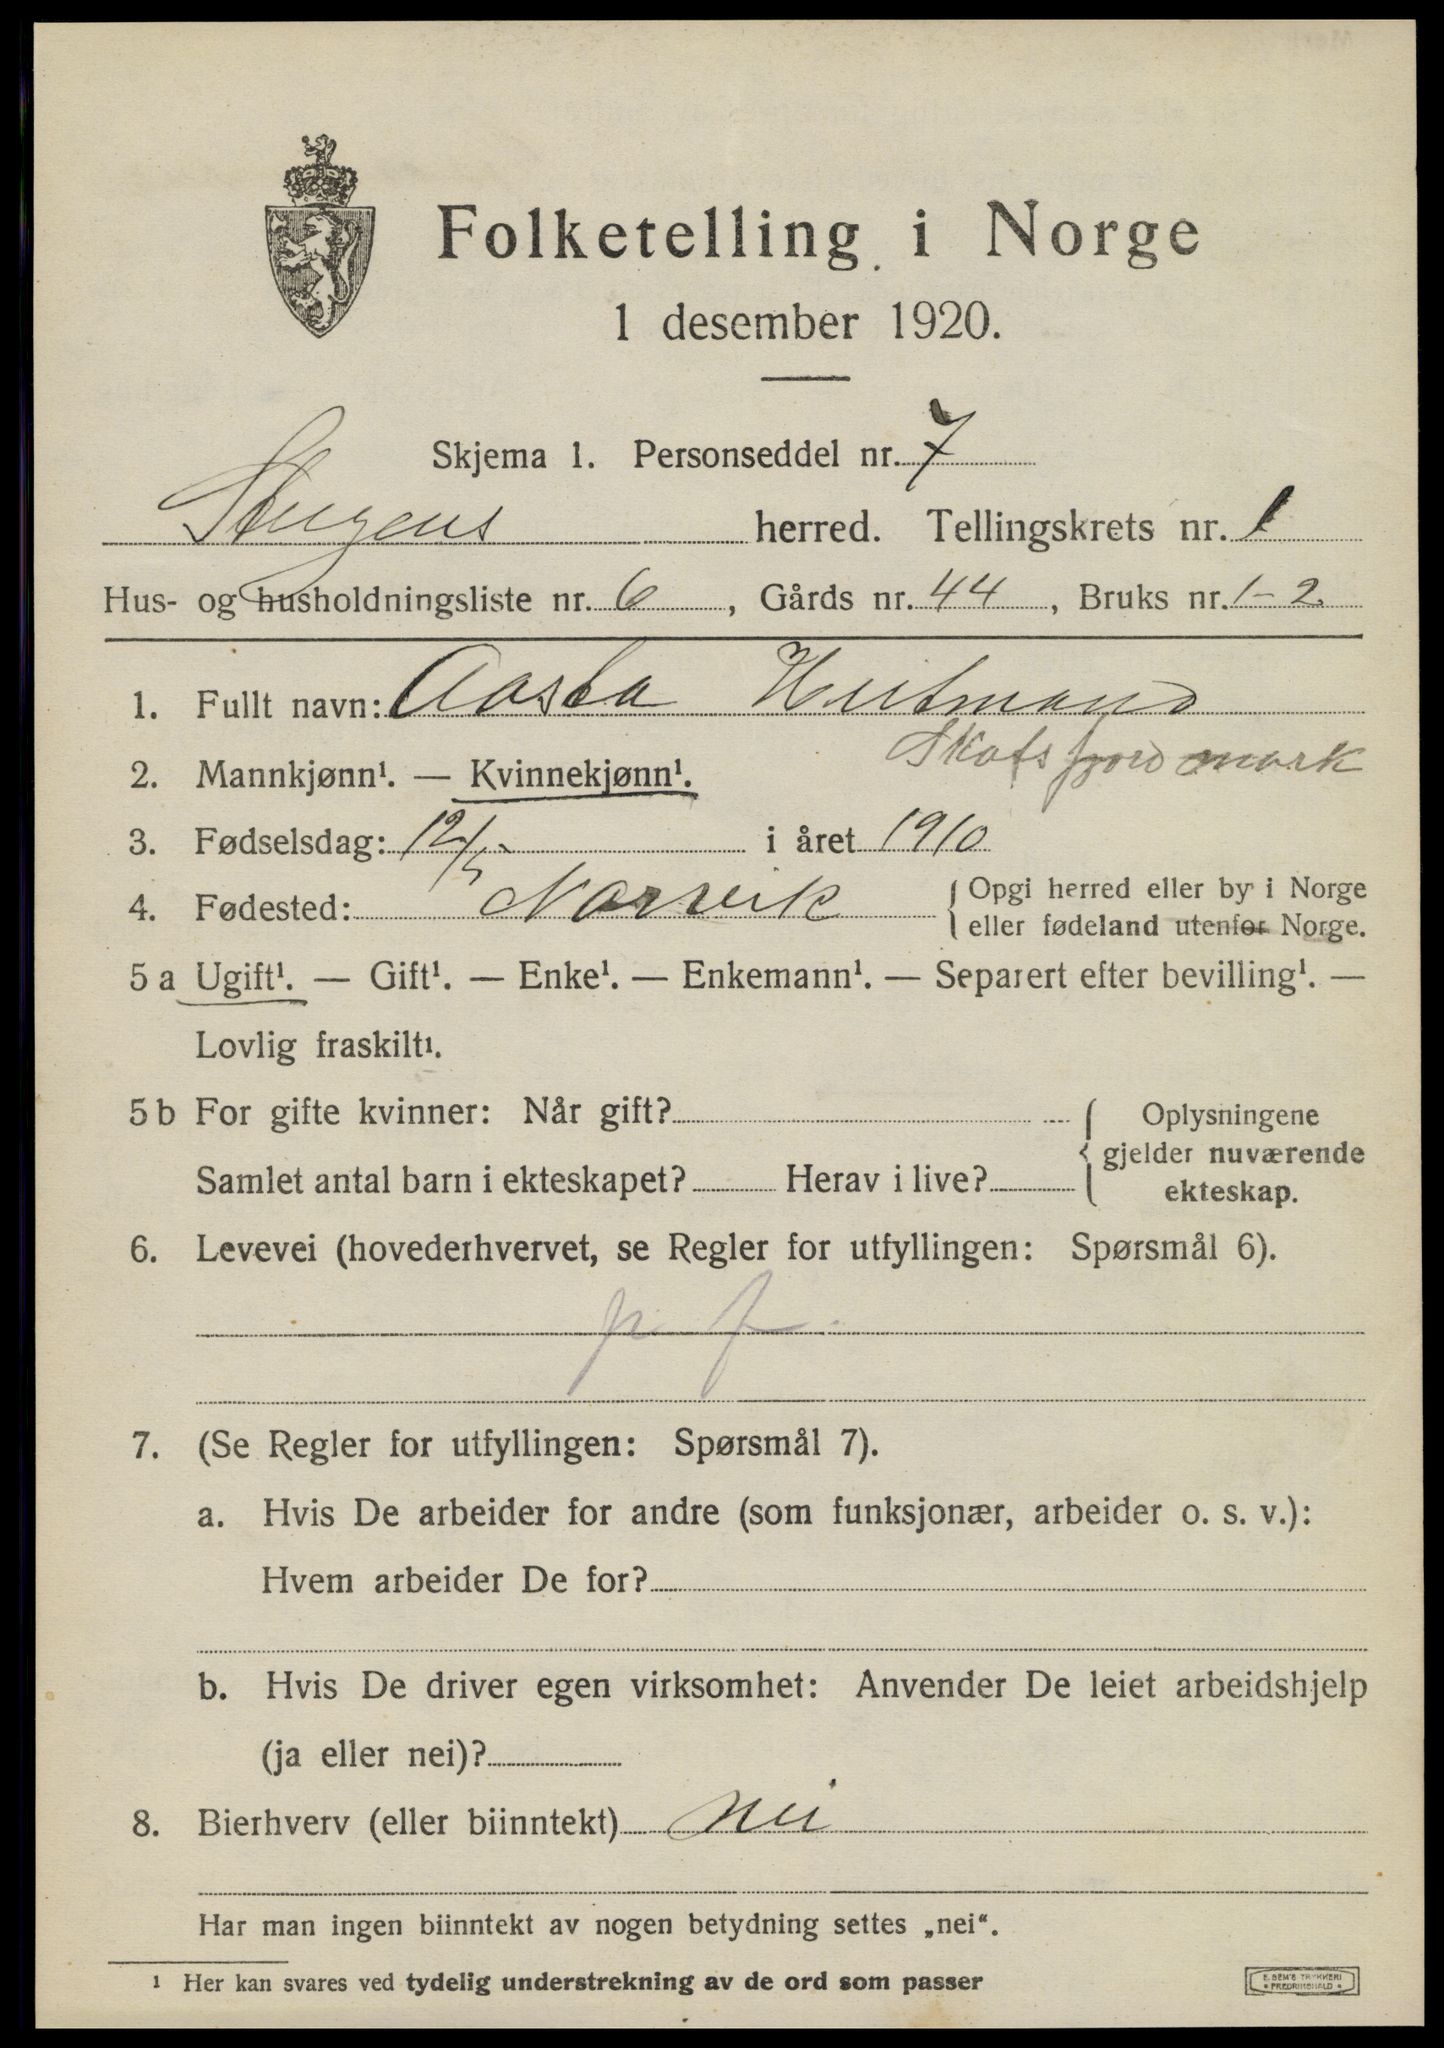 Folketelling i Norge
1 desember 1920.
Skjema 1. Personseddel nr. 7
Steigens herred. Tellingskrets nr. 1
Hus- og husholdningsliste nr. 6, Gårds nr. 44, Bruks nr. 1-2
1. Fullt navn: Aasta Heitmand
Skotsfjordmark
2. Mannkjønn¹. — Kvinnekjønn¹.
3. Fødselsdag: 12/5 i året 1910
4. Fødested: Narvik { Opgi herred eller by i Norge
eller fødeland utenfor Norge.
5 a Ugift¹. — Gift¹. — Enke¹. — Enkemann¹. — Separert efter bevilling¹. —
Lovlig fraskilt¹.
5 b For gifte kvinner: Når gift? { Oplysningene
gjelder nuværende
Samlet antal barn i ekteskapet? Herav i live? ekteskap.
6. Levevei (hovederhvervet, se Regler for utfyllingen: Spørsmål 6).
p. f.
7. (Se Regler for utfyllingen: Spørsmål 7).
a. Hvis De arbeider for andre (som funksjonær, arbeider o. s. v.):
Hvem arbeider De for?
b. Hvis De driver egen virksomhet: Anvender De leiet arbeidshjelp
(ja eller nei)?
8. Bierhverv (eller biinntekt) nei
Har man ingen biinntekt av nogen betydning settes „nei“.
¹ Her kan svares ved tydelig understrekning av de ord som passer
E. SEM'S TRYKKERI
FREDRIKSHALD